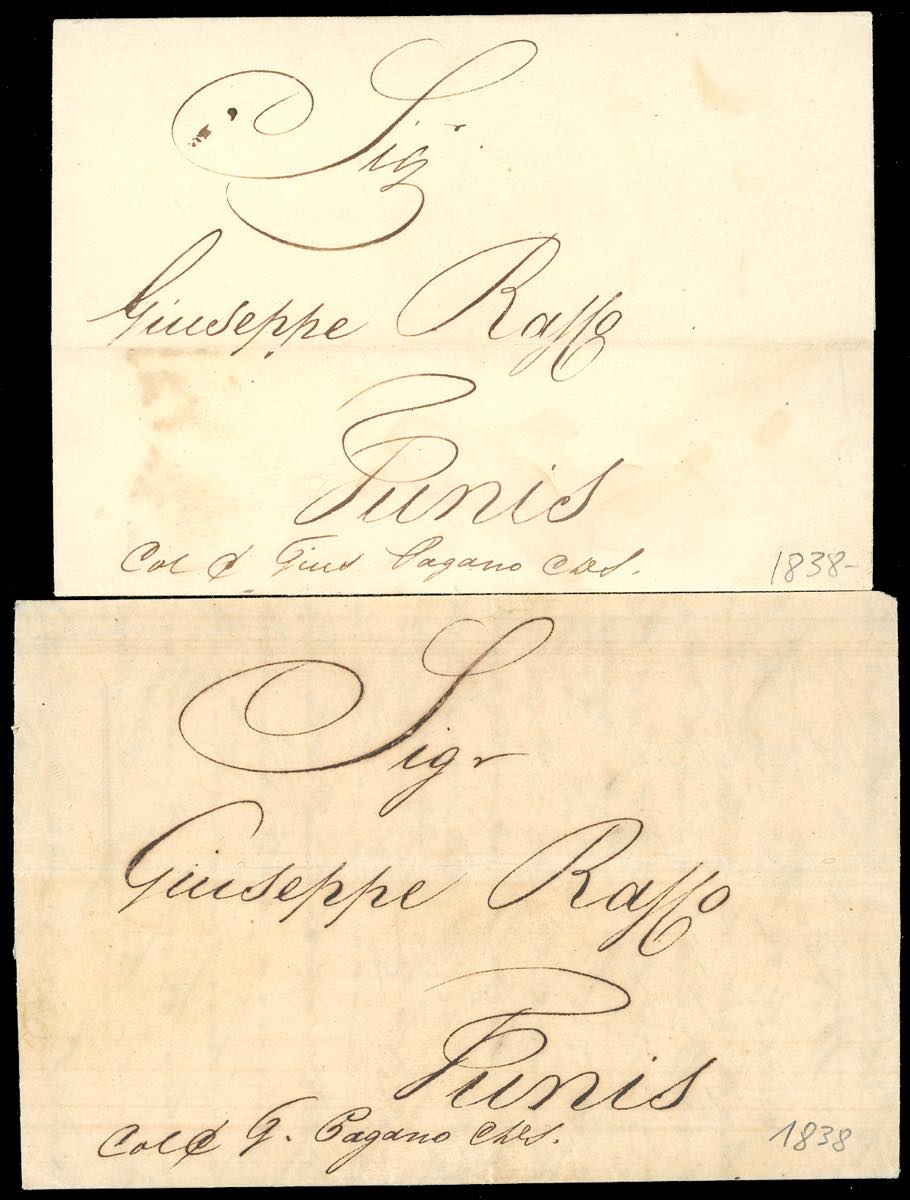 Sigr
Giuseppe Raffo
Tunis
Col Gius Pagano
1838-
Sigr
Giuseppe Raffo
Tunis
Col G. Pagano
1838